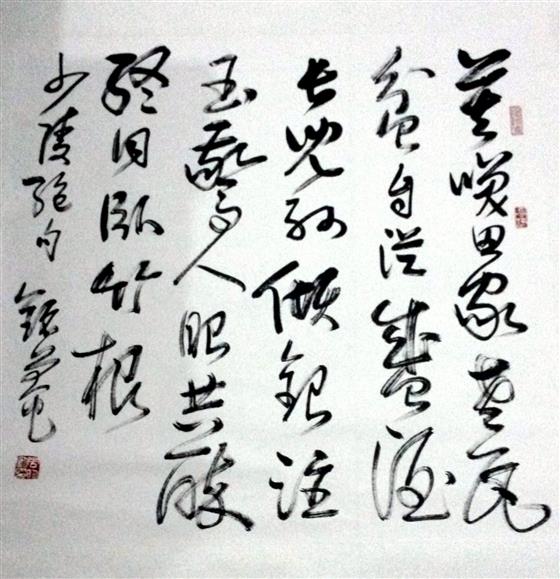 莫咲田家老瓦
盆自從盛酒
長兒孫傾銀注
玉驚人眼共醉
終同臥竹根
少陵絕句